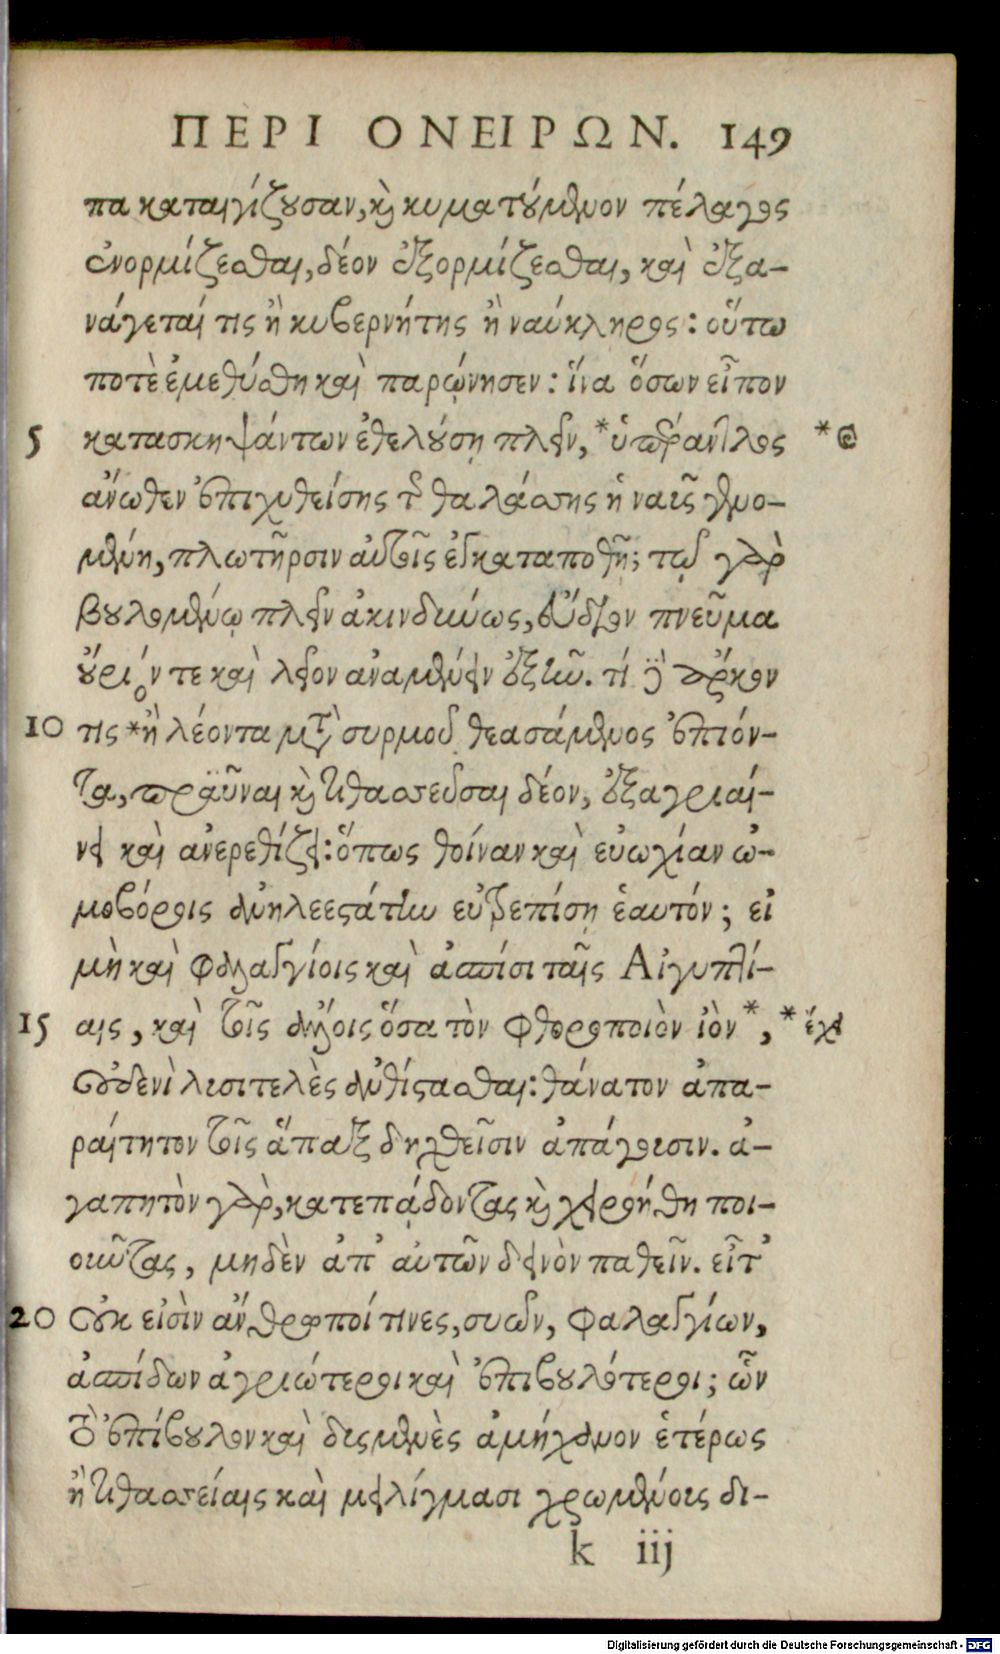 ΠΕΡΙ ΟΝΕΙΡΩΝ. 149
πα καταιγίζουσαν, καὶ κυματούμενον πέλαγος
ἐνορμίζεσθαι, δέον ἐξορμίζεσθαι, καὶ ἐξα-
νάγεταί τις ἢ κυβερνήτης ἢ ναύκληρος: οὕτω
ποτὲ ἐμεθύσθη καὶ παρῴνησεν: ἵνα ὅσων εἶπον
5 κατασκηψάντων ἐθελούσῃ πλεῖν, * ὑπεράντλος * ἐ
ἄνωθεν ἐπιχυθείσης τῆς θαλάσσης ἡ ναῦς γενο-
μένη, πλωτῆρσιν αὐτοῖς ἐγκαταποθῇ; τῷ γὰρ
βουλομένῳ πλεῖν ἀκινδύνως, εὔδιον πνεῦμα
οὔριόν τε καὶ λεῖον ἀναμένειν ἐξῆν. τί δὲ δράκον
10 τις * ἢ λέοντα μετὰ συρμοῦ θεασάμενος ἐπιόν-
τα, πραῧναι καὶ τιθασσεῦσαι δέον, ἐξαγριαί-
νει καὶ ἀνερεθίζει: ὅπως θοίναν καὶ εὐωχίαν ὠ-
μοβόροις ἀνηλεεστάτην εὐτρεπίσῃ ἑαυτόν; εἰ
μὴ καὶ φαλαγγίοις καὶ ἀσπίσι ταῖς Αἰγυπτί-
15 αις, καὶ τοῖς ἄλλοις ὅσα τὸν φθοροποιὸν ἰὸν *, * ἔχει
οὐδενὶ λυσιτελὲς ἀνθίστασθαι: θάνατον ἀπα-
ραίτητον τοῖς ἅπαξ δηχθεῖσιν ἀπάγουσιν. ἀ-
γαπητὸν γὰρ, κατεπᾴδοντας καὶ χειροήθη ποι-
οῦντας, μηδὲν ἀπ' αὐτῶν δεινὸν παθεῖν. εἶτ'
20 οὐκ εἰσὶν ἄνθρωποί τινες, συῶν, φαλαγγίων,
ἀσπίδων ἀγριώτεροι καὶ ἐπιβουλότεροι; ὧν
τὸ ἐπίβουλον καὶ δυσμενὲς ἀμήχανον ἑτέρως
ἢ τιθασσείαις καὶ μειλίγμασι χρωμένοις δι-
k iij
Digitalisierung gefördert durch die Deutsche Forschungsgemeinschaft - DFG